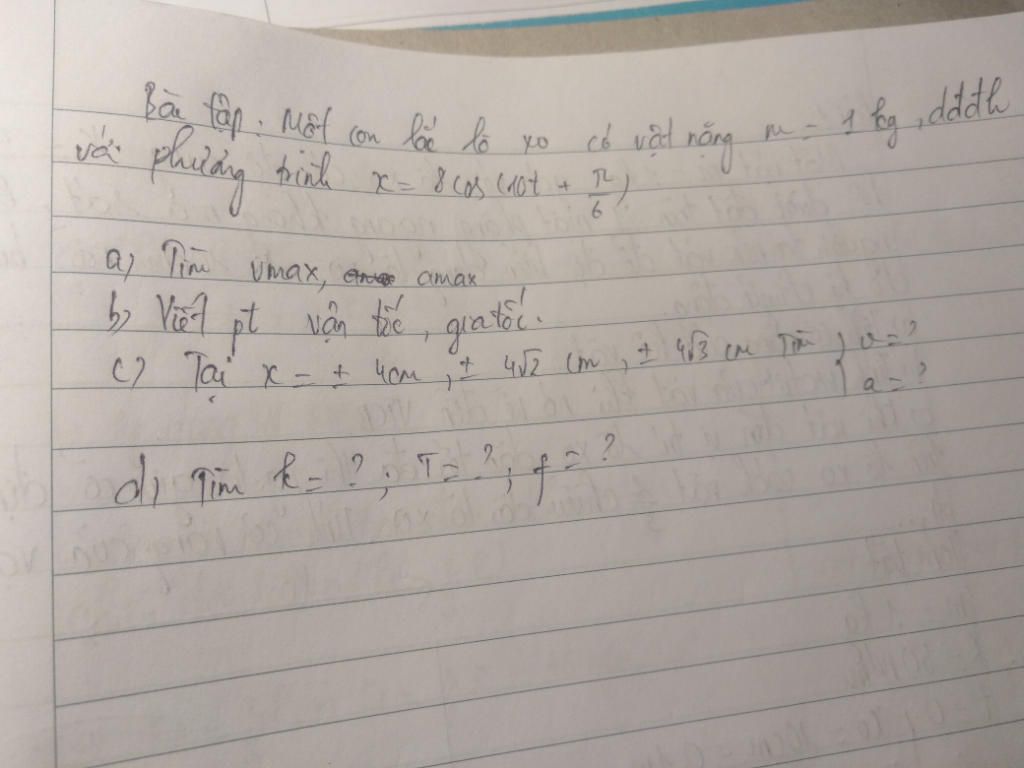 Bài tập. Một con lắc lò xo có vật nặng m = 1 kg, dđđh
với phương trình x = 8cos(10t + π/6)
a, Tìm vmax, amax
b, Viết pt vận tốc, gia tốc.
c) Tại x = ± 4cm, ± 4√2 cm, ± 4√3 cm Tìm } v = ?
a = ?
d, Tìm k = ? ; T = ?, f = ?